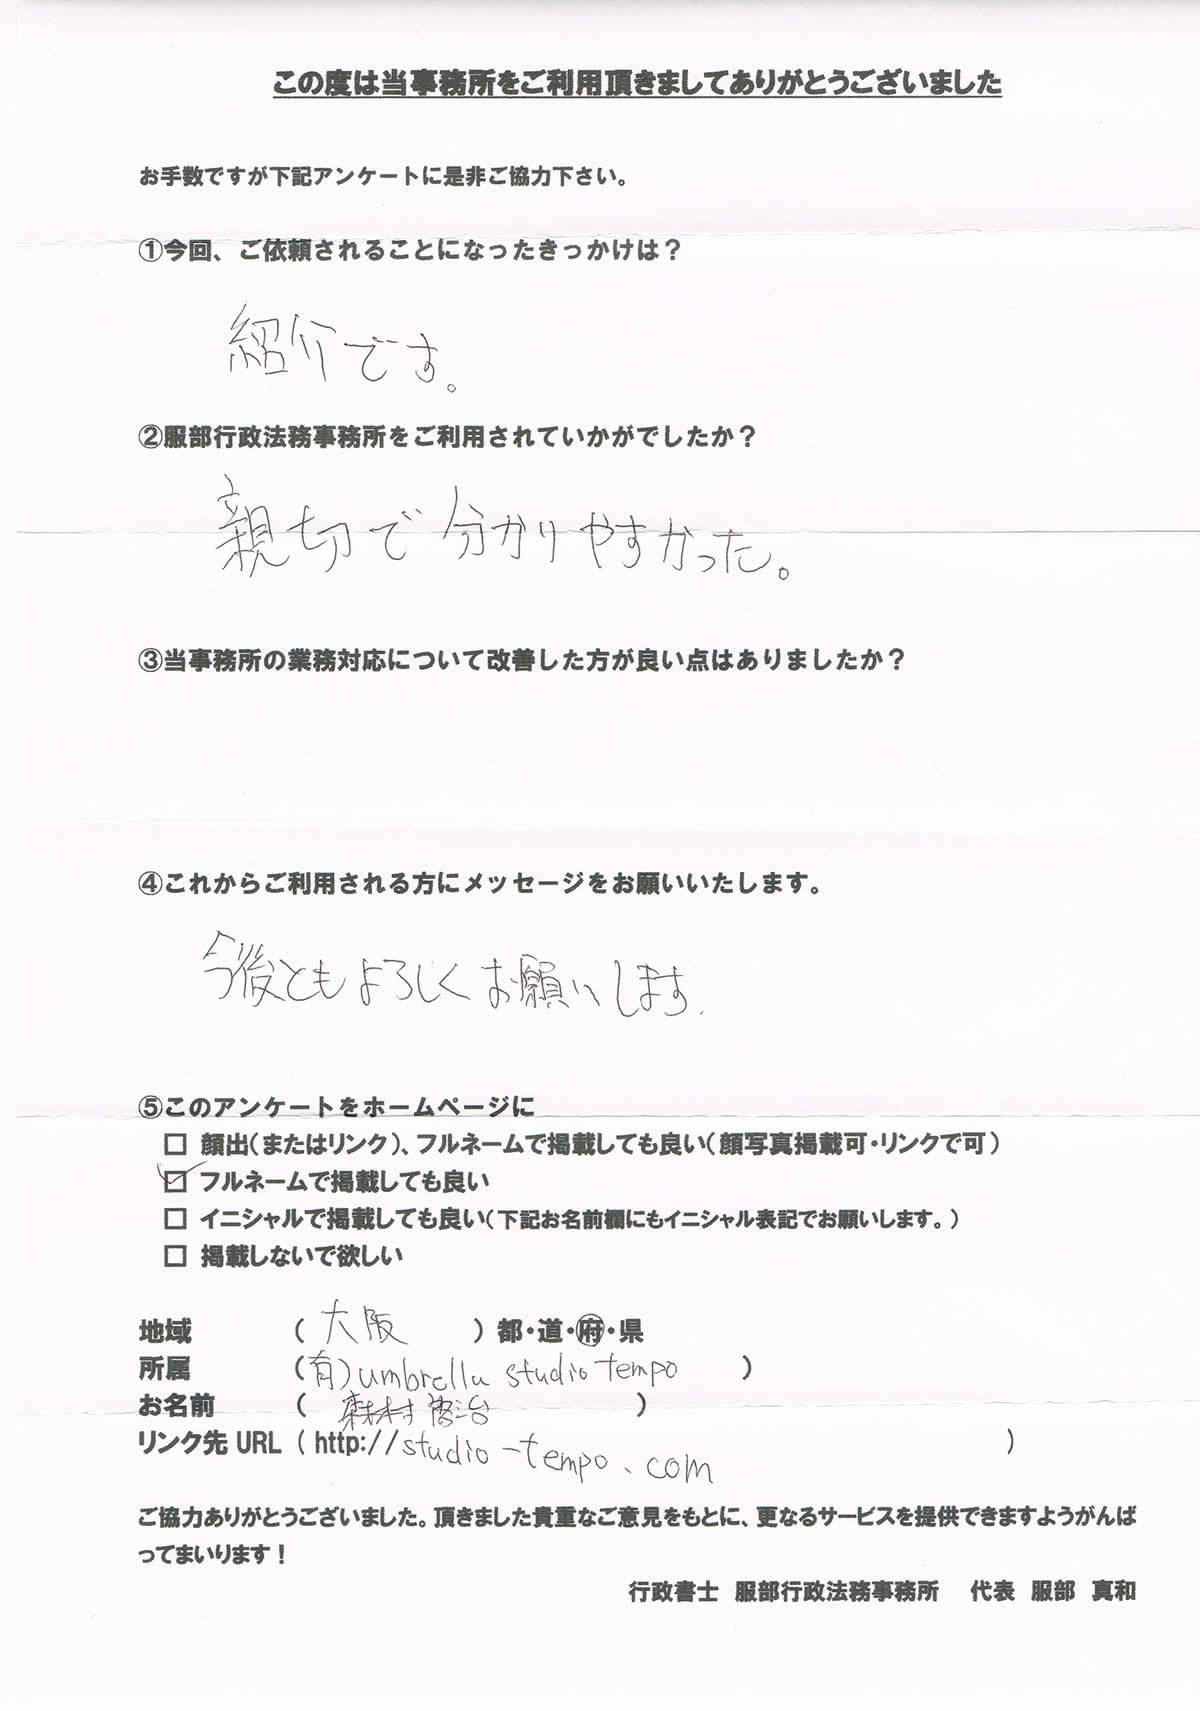 この度は当事務所をご利用頂きましてありがとうございました
お手数ですが下記アンケートに是非ご協力下さい。
①今回、ご依頼されることになったきっかけは？
紹介です。
②服部行政法務事務所をご利用されていかがでしたか？
親切で分かりやすかった。
③当事務所の業務対応について改善した方が良い点はありましたか？
④これからご利用される方にメッセージをお願いいたします。
今後ともよろしくお願いします.
⑤このアンケートをホームページに
□ 顔出（またはリンク）、フルネームで掲載しても良い（顔写真掲載可・リンクで可）
☑ フルネームで掲載しても良い
□ イニシャルで掲載しても良い（下記お名前欄にもイニシャル表記でお願いします。）
□ 掲載しないで欲しい
地域 （ 大阪 ）都・道・府・県
所属 （(有)umbrella studio tempo ）
お名前 （ 森村 啓治 ）
リンク先 URL（http://studio-tempo.com ）
ご協力ありがとうございました。頂きました貴重なご意見をもとに、更なるサービスを提供できますようがんば
ってまいります！
行政書士 服部行政法務事務所 代表 服部 真和